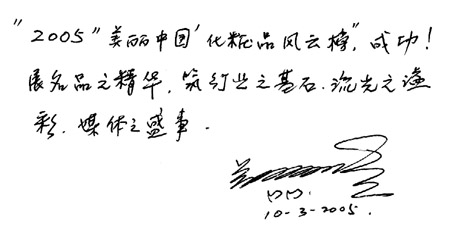 "2005"美丽中国'化粧品风云榜",成功!
展名品之精华、筑行业之基石、流光之溢
彩、媒体之盛事.
10-3-2005.